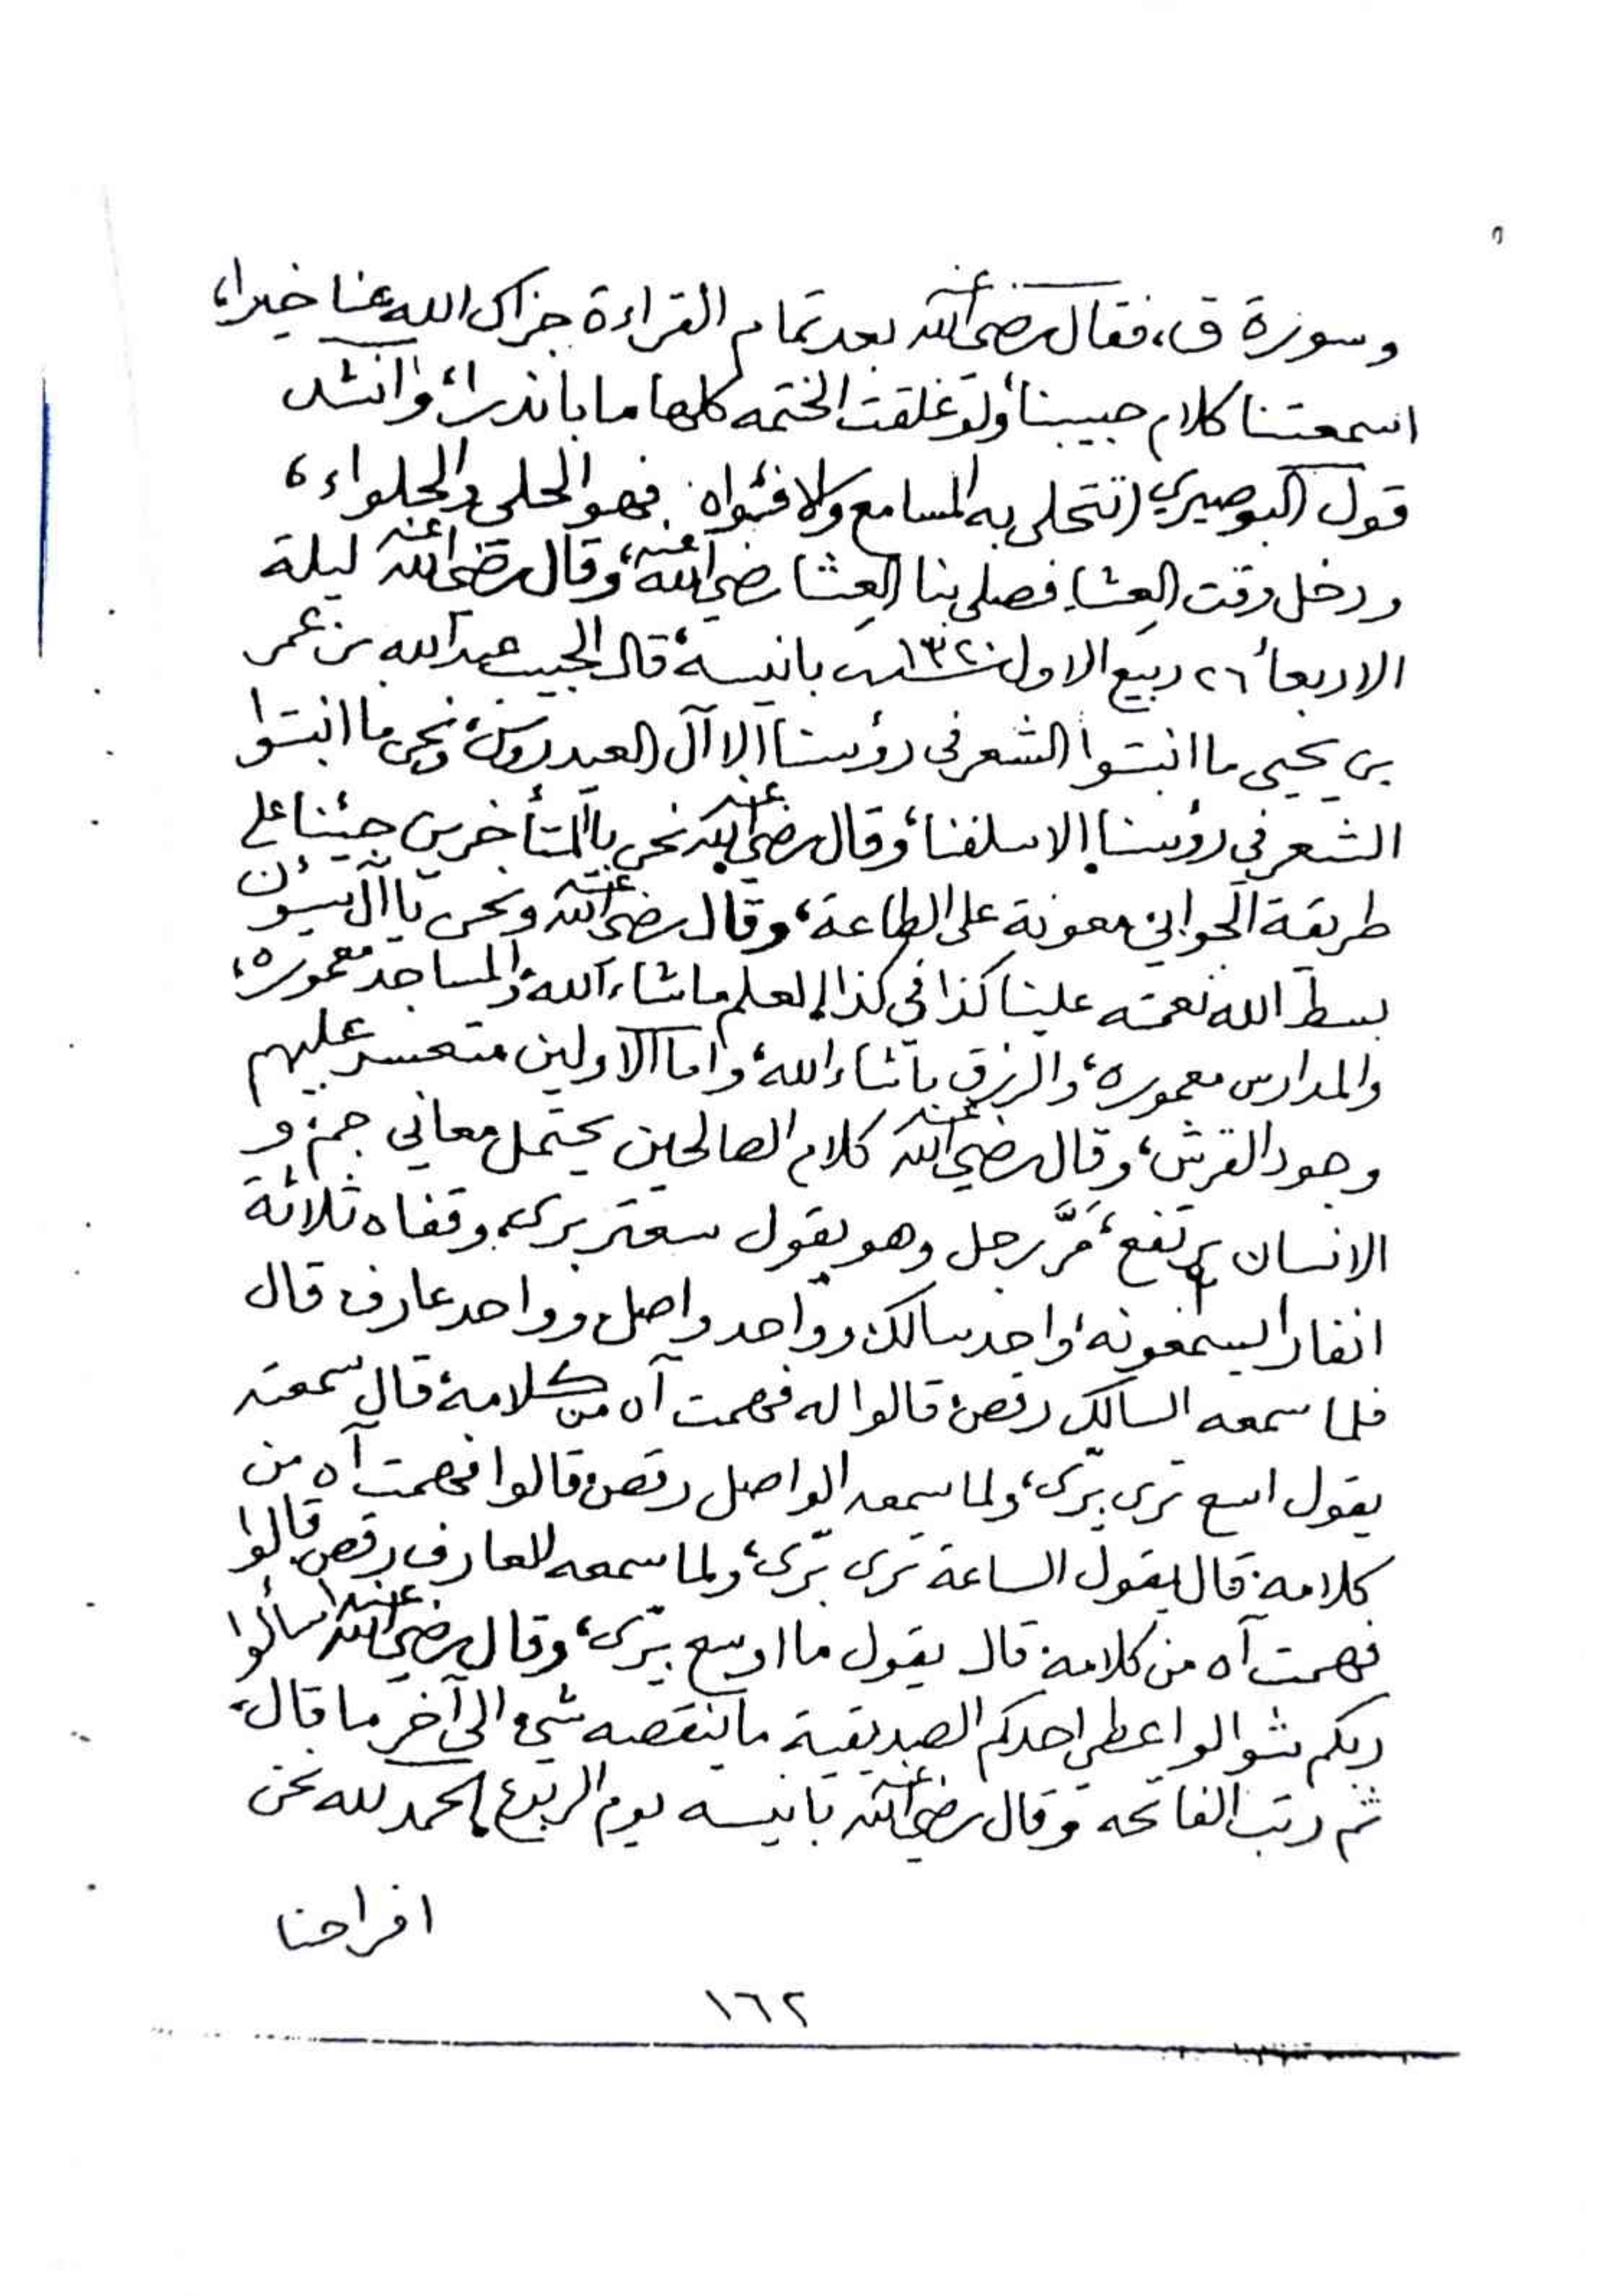 وسورة ق، فقال رضي الله عنه بعد تمام القراءة جزاك الله عنا خيرا،
اسمعتنا كلام حبيبنا، ولو غلقت الختمه كلها ما باندرا، وانشد
قول البوصيري (تتحلى به المسامع والافئواه فهو الحلي والحلواء،
ودخل وقت العشاء فصلى بنا العشا رضي الله عنه، وقال رضي الله عنه ليلة
الاربعاء ٢٦ ربيع الاول سنة ١٣٢٠ بانيسه، قال الحبيب عبد الله بن عمر
بن يحيى ما انبتوا الشعر في رؤسنا إلا آل العيدروس، ونحن ما انبتوا
الشعر في رؤسنا إلا سلفنا، وقال رضي الله عنه نحن يا المتأخرين جيئنا على
طريقة الجوابي معونة على الطاعة، وقال رضي الله عنه ونحن يا آل سيئون
بسط الله نعمته علينا كذا في كذا، العلم ماشاء الله، والمساجد معموره،
والمدارس معموره، والرزق ماشاء الله، واما الاولين متعسر عليهم
وجود القرش، وقال رضي الله عنه كلام الصالحين يحتمل معاني جمه و
الانسان يرتفع، مَرَّ رجل وهو يقول سعتر بري، وقفاه ثلاثة
انفار يسمعونه، واحد سالك وواحد واصل وواحد عارف قال
فلما سمعه السالك رقص، قالوا له فهمت آه من كلامه، قال سمعته
يقول اسع ترى برّى، ولما سمعه الواصل رقص، قالوا فهمت آه من
كلامه، قال يقول الساعة ترى برّى، ولما سمعه العارف رقص، قالوا
فهمت آه من كلامه، قال يقول ما اوسع برّى، وقال رضي الله عنه اسألوا
ربكم شوا لو اعطى احدكم الصديقية ما ينقصه شيء الى آخر ما قال،
ثم رتب الفاتحه وقال رضي الله عنه بانيسه يوم الربوع الحمد لله نحن
افراحنا
١٦٢